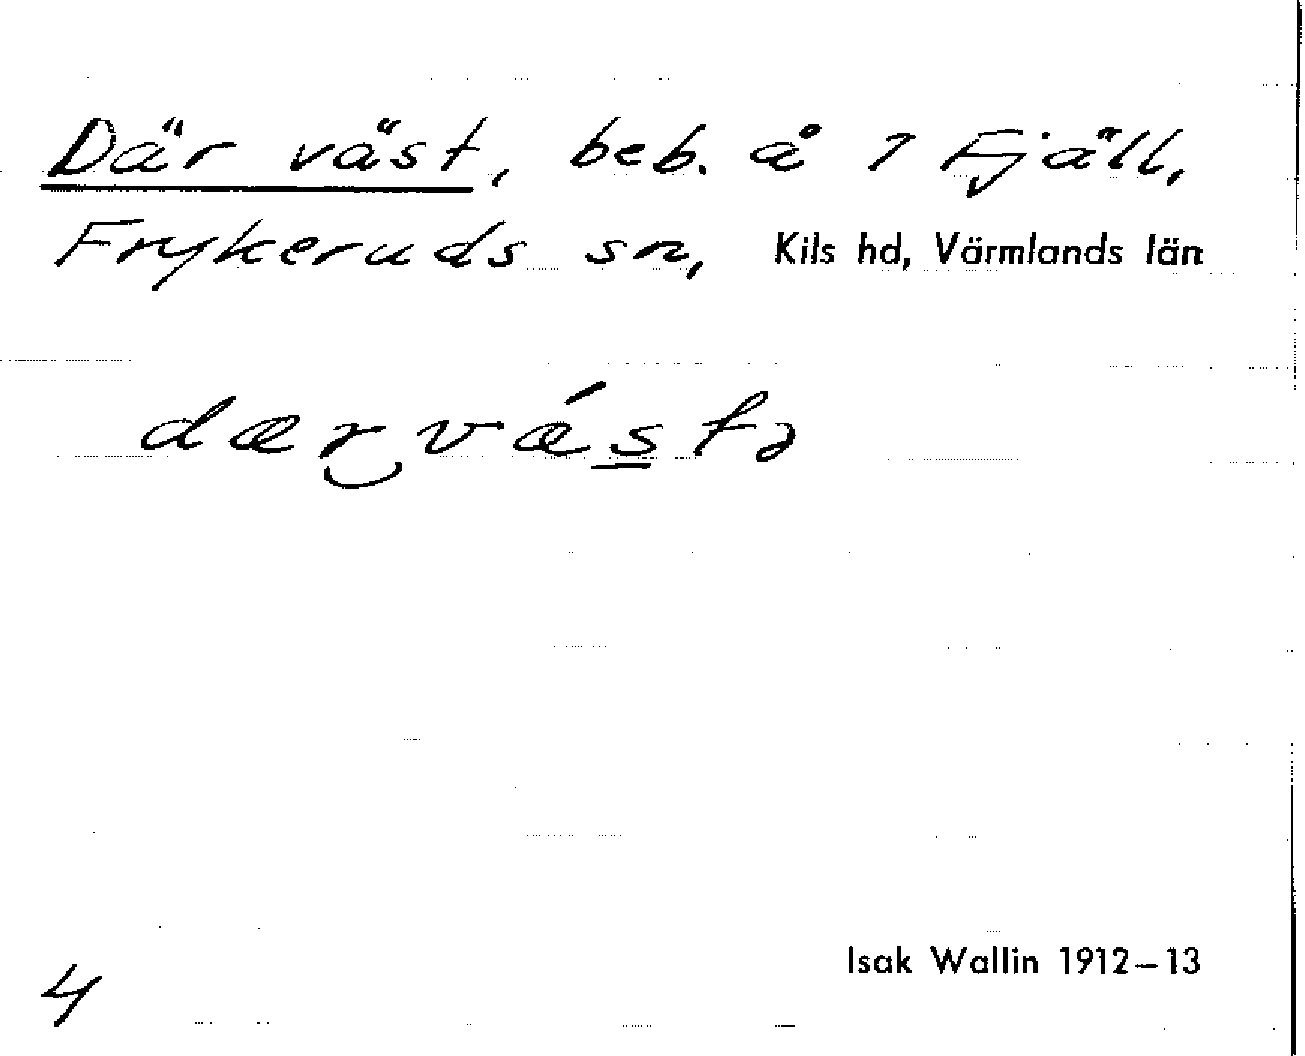 Där väst, beb. å 1 Fjäll,
Frykeruds sn, Kils hd, Värmlands län
dærvǽstə
Isak Wallin 1912–13
4